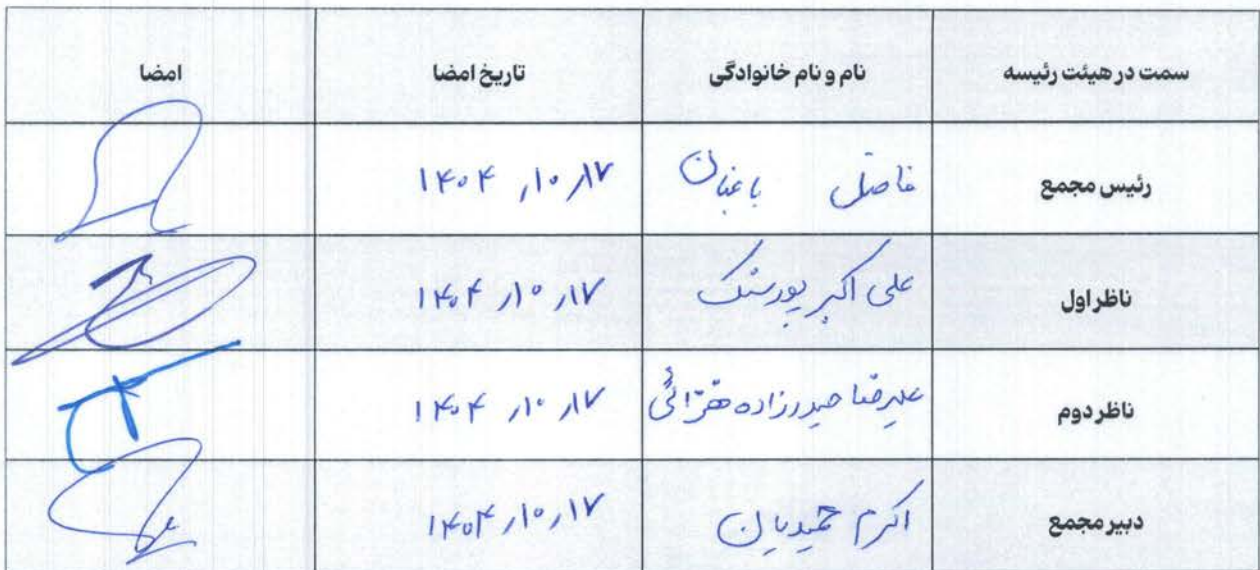 سمت در هیئت رئیسه نام و نام خانوادگی تاریخ امضا امضا
رئیس مجمع فاضل باغبان ۱۴۰۴,۱۰,۱۷
ناظر اول علی اکبر پورسنگ ۱۴۰۴,۱۰,۱۷
ناظر دوم علیرضا حیدرزاده ۱۴۰۴,۱۰,۱۷
دبیر مجمع اکرم حمیدیان ۱۴۰۴,۱۰,۱۷